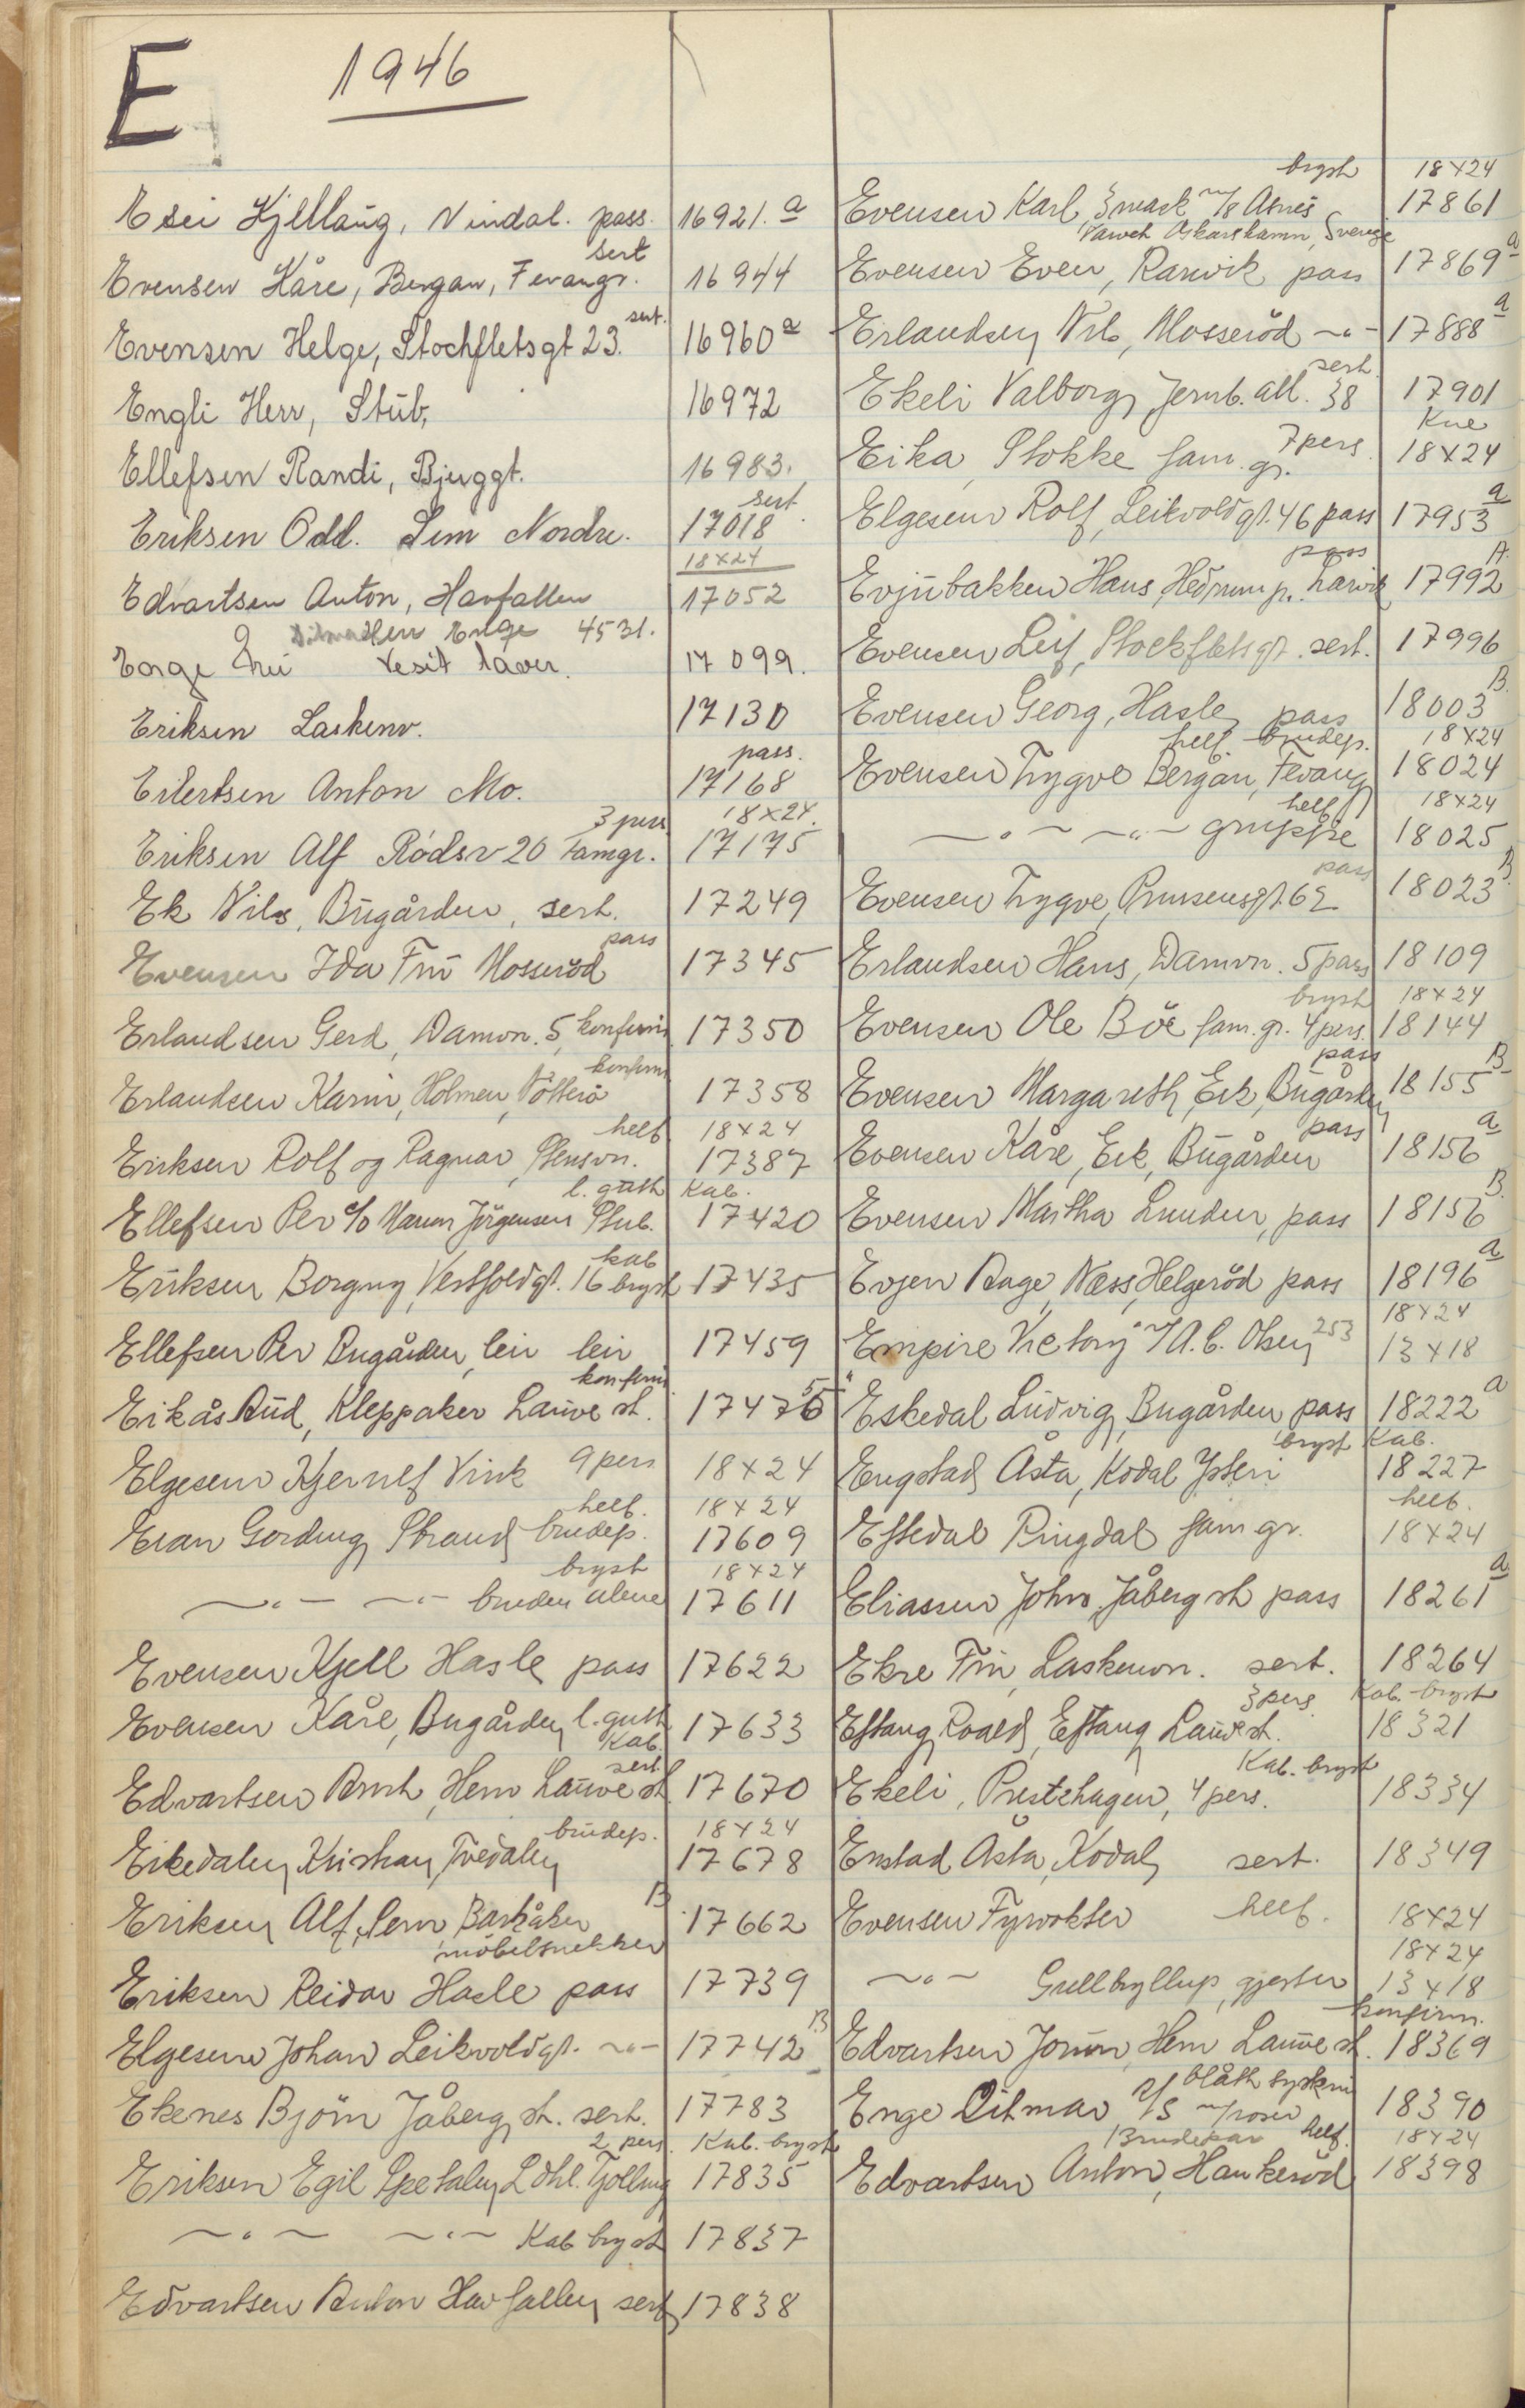 E 1946
Esei Kjellaug, Vindal. pass. 16921.a
sert
Evensen Kåre, Bergan, Fevangr. 16944
sert.
Evensen Helge, Stochfletsgt 23. 16960 a
Engli Herr, Stub, 16972
Ellefsen Randi, Bjerggt. 16983.
sert.
Eriksen Odd. Sem Nordre. 17018
18x24
Edvartsen Anton, Havfallen 17052
Enge 4531.
Fru 17099.
Eriksen Laskenv. 17130
pass.
Eilertsen Anton Mo. 17168
3 pers 18x24.
Eriksen Alf Rødsv 20 famgr. 17175
Ek Nils, Bugården, sert. 17249
pass
Evensen Ida Fru Mosserød 17345
Erlandsen Gerd, Damvn. 5, konfirm 17350
konfirm
Erlandsen Karin, Holmen, Nøtterø 17358
helf 18x24
Eriksen Rolf og Ragnar, Stensvn. 17387
l. gutt Kab.
Ellefsen Per c/o Maren Jörgensen Stub. 17420
kab
Eriksen Borgny, Vestfoldgt. 16 bryst 17435
Ellefsen Per Bugården, leir leir 17459
konfirm
Eikås Aud, Kleppaker Lauve st. 17476 55
Elgesem Kjernlf Vink 9 pers 18x24
helf. 18x24
Eian Gording, Strand brudep. 17609
bryst 18x24
—„— —„— bruden alene 17611
Evensen Kjell Hasle pass 17622
Evensen Kåre, Bugården l. gutt 17633
Kab.
sert.
Edvartsen Arnt, Hem Lauve st. 17670
brudep. 18x24
Eikedalen Kristian, Tvedalen 17678
B
Eriksen Alf, Sem, Barkåker 17662
møbelsnekker
Eriksen Reidar Hasle pass 17739
Elgesem Johan Leikvoldgt. —„— 17742 B
Ekenes Bjørn Jåberg st. sert. 17783
2 pers. Kab. bryst
Eriksen Egil Spetalen, Ldhl. Tjølling 17835
—„— —„— Kab bryst 17837
Edvartsen Anton Havfallen sert 17838
bryst 18x24
Evensen Karl, 3 mask m/s Agnes 17861
Oskarshamn, Sverige
Evensen Even, Ranvik pass 17869 a
Erlandsen Nils, Mosserød —„— 17888 a
sert.
Ekeli Valborg, Jernb. all. 38 17901
Kne
Eika, Stokke fam. gr. 7 pers. 18x24
Elgesem Rolf, Leikvoldgt. 46 pass 17953 a
pass
Evjubakken Hans, Hedrum p. Larvik 17992 A.
Evensen Leif, Stockfletsgt. sert. 17996
Evensen Georg, Hasle, pass 18003 B.
helf. brudep. 18x24
Evensen Trygve Bergan, Fevang 18024
helf 18x24
—„— —„— gruppe 18025
pass
Evensen Trygve, Prinsensgt. 62 18023 B.
Erlandsen Hans, Damvn. 5 pass 18109
bryst 18x24
Evensen Ole Bøe fam. gr. 4 pers. 18144
pass
Evensen Margareth, Eik, Bugården 18155 B
pass
Evensen Kåre, Eik, Bugården 18156 a
Evensen Martha Lunden, pass 18156 B.
Evjen Aage, Næss, Helgerød pass 18196 a
18x24
"Empire Victory" A.C. Olsen 253 13x18
Eskedal Ludvig, Bugården pass 18222 a
bryst Kab.
Engstad Åsta, Kodal Ysteri 18227
helf.
Eftedal Ringdal fam gr. 18x24
Eliassen John. Jåberg st pass 18261 a
Ekre Fru, Laskenvn. sert. 18264
3 pers. Kab. bryst
Eftang Roald, Eftang Lauve st. 18321
Kab. bryst
Ekeli, Prestehagen, 4 pers. 18334
Enstad Åsta, Kodal sert. 18349
Evensen Fyrvokter helf. 18x24
18x24
—„— Gullbryllup, gjester 13x18
konfirm.
Edvartsen Jorun, Hem Lauve st. 18369
Enge Ditmar 2/s m/roser 18390
Brudepar helf. 18x24
Edvartsen Anton, Haukerød 18398